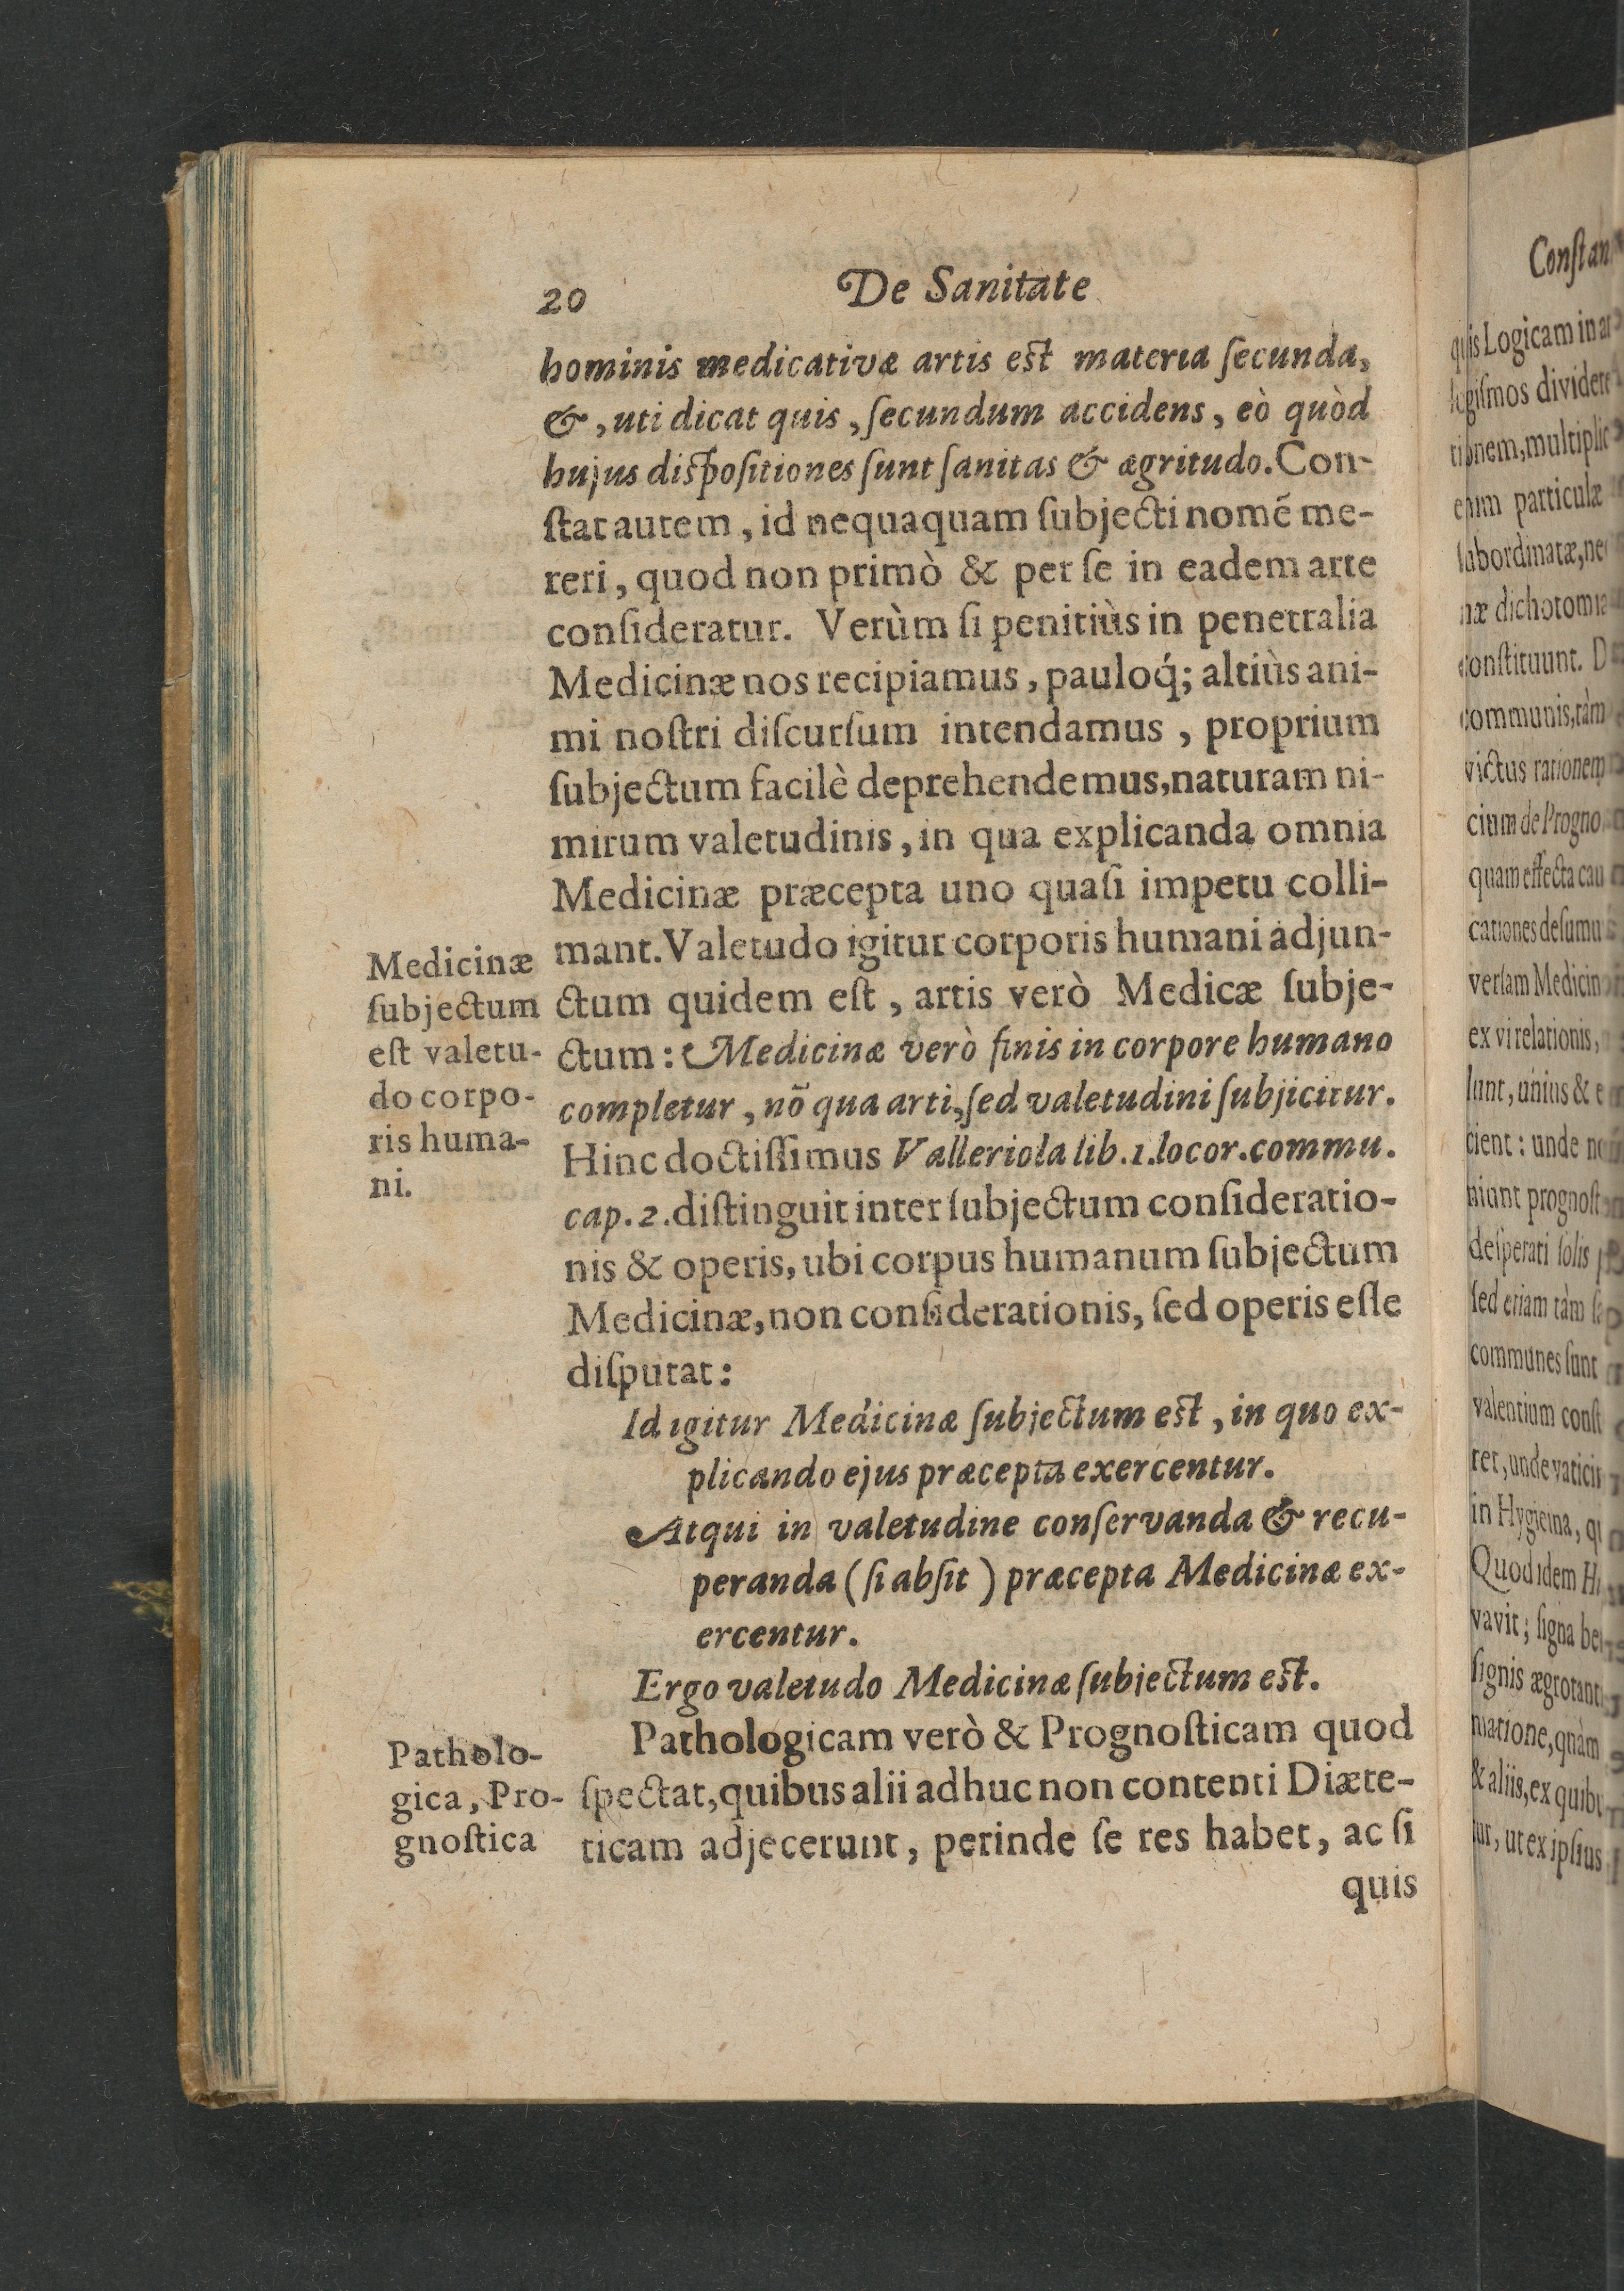 20 De Sanitate
hominis medicativæ artis est materia ſecunda,
&, uti dicat quis, ſecundum accidens, eò quòd
hujus dispoſitiones ſunt ſanitas & ægritudo. Con-
ſtat autem, id nequaquam ſubjecti nomẽ me-
reri, quod non primò & per ſe in eadem arte
conſideratur. Verùm ſi penitiùs in penetralia
Medicinæ nos recipiamus, pauloq́; altiùs ani-
mi noſtri diſcurſum intendamus, proprium
ſubjectum facilè deprehendemus, naturam ni-
mirum valetudinis, in qua explicanda omnia
Medicinæ præcepta uno quaſi impetu colli-
mant. Valetudo igitur corporis humani adjun-
ctum quidem eſt, artis verò Medicæ ſubje-
ctum: Medicinæ verò finis in corpore humano
completur, nō qua arti, ſed valetudini ſubjicitur.
Hinc doctiſſimus Valleriola lib. 1. locor. commu.
cap. 2. diſtinguit inter ſubjectum conſideratio-
nis & operis, ubi corpus humanum ſubjectum
Medicinæ, non conſiderationis, ſed operis eſſe
diſputat:
Id igitur Medicinæ ſubjectum est, in quo ex-
plicando ejus præcepta exercentur.
Atqui in valetudine conſervanda & recu-
peranda (ſi abſit) præcepta Medicinæ ex-
ercentur.
Ergo valetudo Medicinæ ſubiectum est.
Pathologicam verò & Prognoſticam quod
ſpectat, quibus alii adhuc non contenti Diæte-
ticam adjecerunt, perinde ſe res habet, ac ſi
quis
Medicinæ
ſubjectum
eſt valetu-
do corpo-
ris huma-
ni.
Patholo-
gica, Pro-
gnoſtica
Conſtan
quis Logicam in
dividere
multiplic
particulæ
ſubordinatæ, ne
næ dichotomia
conſtituunt. D
communis, tàm
victus rationem
cium de Progno
quam effecta cau
cationes deſumu
verſam Medicin
ex vi relationis,
ſunt, unius & e
cient: unde no
niunt prognoſt
deſperati ſolis
ſed etiam tàm
communes ſunt
valentium conſt
ret, unde vaticin
in Hygieina, q
Quod idem Hi
vavit; ſigna be
ſignis ægrotant
matione, quàm
& aliis, ex quibu
tur, ut ex ipſius